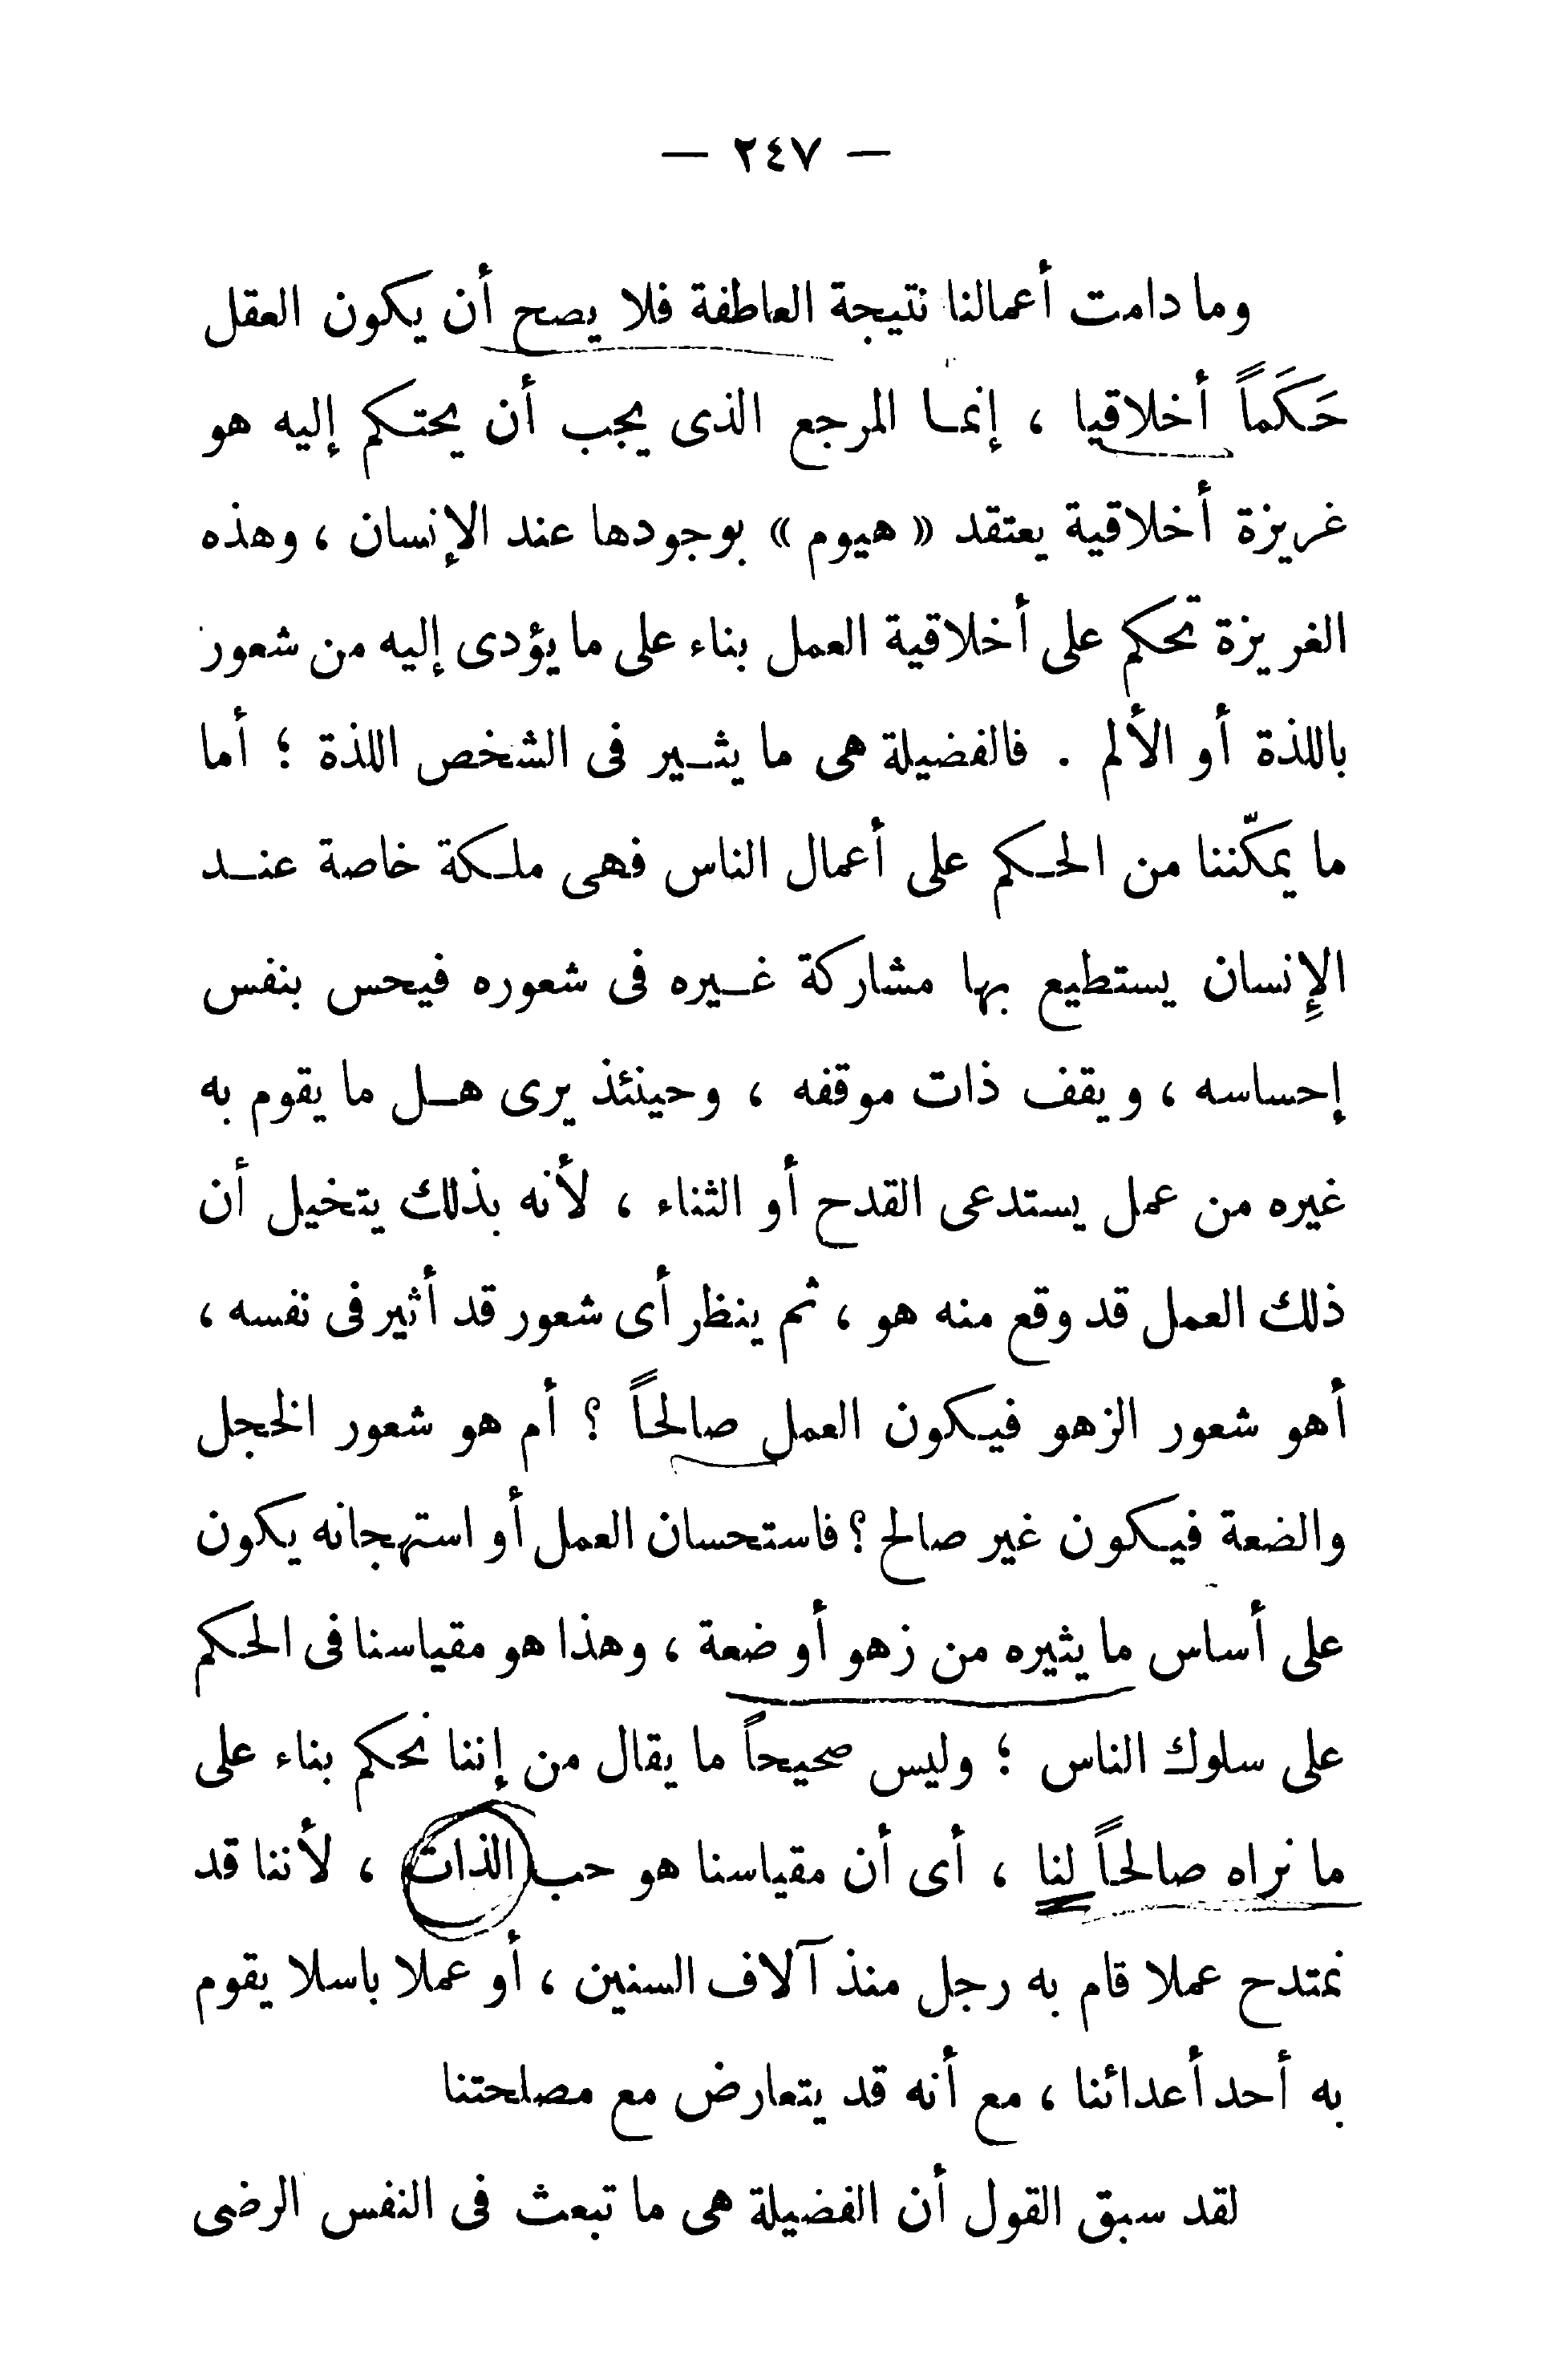 — ٢٤٧ —
وما دامت أعمالنا نتيجة العاطفة فلا يصح أن يكون العقل
حَكَماً أخلاقيا ، إنما المرجع الذى يجب أن يحتكم إليه هو
غريزة أخلاقية يعتقد « هيوم » بوجودها عند الإنسان ، وهذه
الغريزة تحكم على أخلاقية العمل بناء على ما يؤدى إليه من شعور
باللذة أو الألم . فالفضيلة هى ما يثير فى الشخص اللذة ؛ أما
ما يمكّننا من الحكم على أعمال الناس فهى ملكة خاصة عند
الإنسان يستطيع بها مشاركة غيره فى شعوره فيحس بنفس
إحساسه ، ويقف ذات موقفه ، وحينئذ يرى هل ما يقوم به
غيره من عمل يستدعى القدح أو الثناء ، لأنه بذلك يتخيل أن
ذلك العمل قد وقع منه هو ، ثم ينظر أى شعور قد أثير فى نفسه ،
أهو شعور الزهو فيكون العمل صالحاً ؟ أم هو شعور الخجل
والضعة فيكون غير صالح ؟ فاستحسان العمل أو استهجانه يكون
على أساس ما يثيره من زهو أو ضعة ، وهذا هو مقياسنا فى الحكم
على سلوك الناس ؛ وليس صحيحاً ما يقال من إننا نحكم بناء على
ما نراه صالحاً لنا ، أى أن مقياسنا هو حب الذات ، لأننا قد
نمتدح عملا قام به رجل منذ آلاف السنين ، أو عملا باسلا يقوم
به أحد أعدائنا ، مع أنه قد يتعارض مع مصلحتنا
لقد سبق القول أن الفضيلة هى ما تبعث فى النفس الرضى